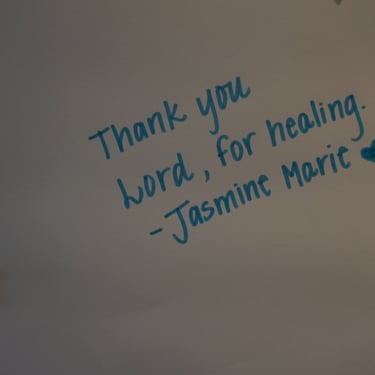 Thank you
Lord, for healing.
-Jasmine Marie